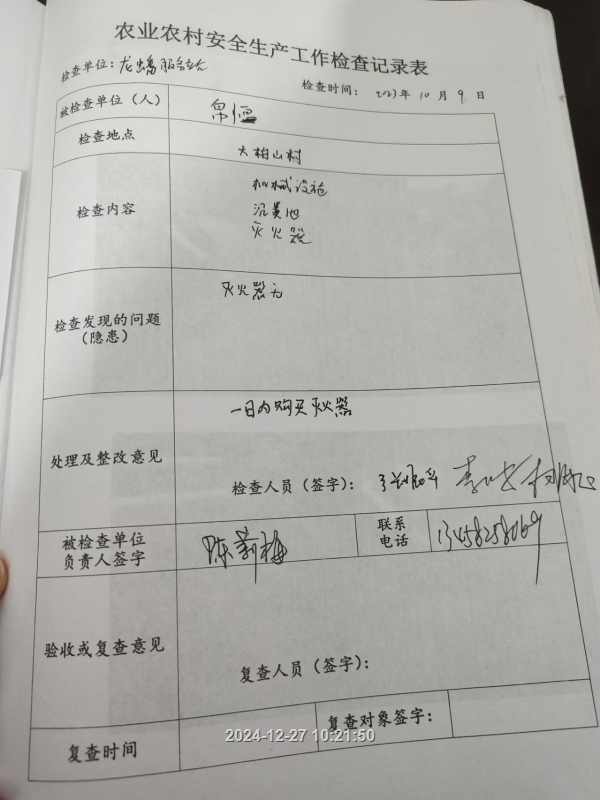 农业农村安全生产工作检查记录表
检查单位：龙蟠服务中心
检查时间： 2023年 10月 9日
被检查单位（人）
检查地点 大柏山村
检查内容 机械设施
沉粪池
灭火器
检查发现的问题（隐患） 灭火器
处理及整改意见 一日内购买灭火器
检查人员（签字）：
被检查单位负责人签字 陈新梅 联系电话 13458258069
验收或复查意见
复查人员（签字）：
复查时间 复查对象签字：
2024-12-27 10:21:50